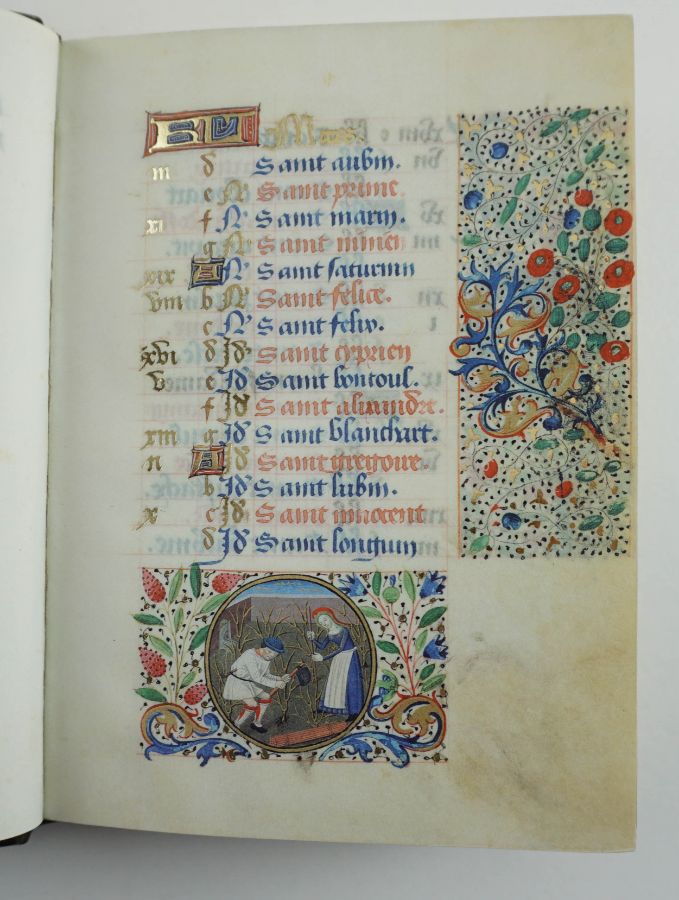 KL Mars
iii d Saint aubin.
e N Saint prime
xi f N Saint marin.
g N Saint
xix A N Saint saturnin
viii b N Saint felice.
c N Saint felix.
xvi d Id Saint cyprien
v e Id Saint bontoul.
f Id Saint alixandre.
xiii g Id Saint blanchart.
ii A Id Saint gregoire.
b Id Saint lubin.
x c Id Saint innocent
d Id Saint longuin